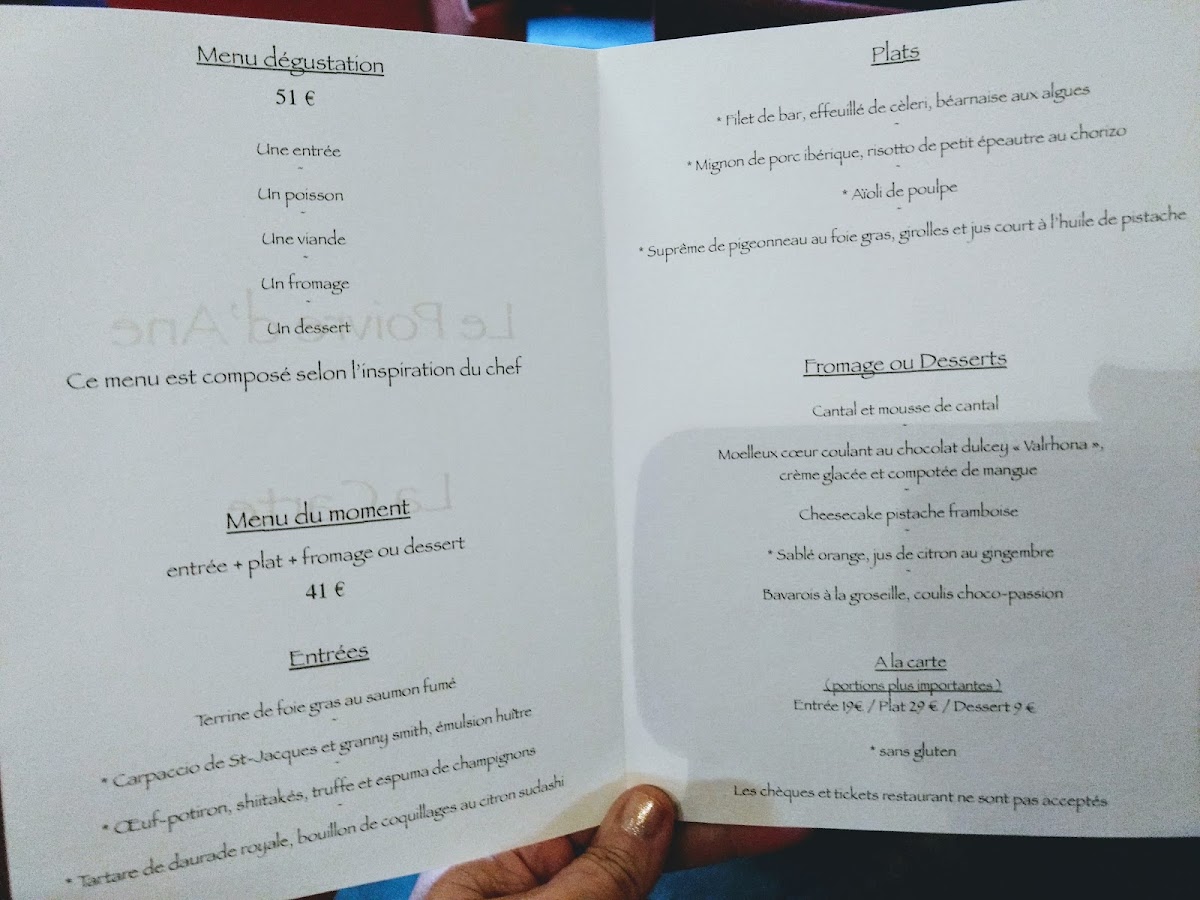 Menu dégustation
51 €
Une entrée
-
Un poisson
-
Une viande
-
Un fromage
-
Un dessert
Ce menu est composé selon l'inspiration du chef
Le Poivre d'Ane
La Carte
Menu du moment
entrée + plat + fromage ou dessert
41 €
Entrées
Terrine de foie gras au saumon fumé
-
* Carpaccio de St-Jacques et granny smith, émulsion huître
-
* Œuf-potiron, shiitakés, truffe et espuma de champignons
-
* Tartare de daurade royale, bouillon de coquillages au citron sudashi
Plats
* Filet de bar, effeuillé de cèleri, béarnaise aux algues
-
* Mignon de porc ibérique, risotto de petit épeautre au chorizo
-
* Aïoli de poulpe
-
* Suprême de pigeonneau au foie gras, girolles et jus court à l'huile de pistache
Fromage ou Desserts
Cantal et mousse de cantal
-
Moelleux cœur coulant au chocolat dulcey « Valrhona »,
crème glacée et compotée de mangue
-
Cheesecake pistache framboise
-
* Sablé orange, jus de citron au gingembre
-
Bavarois à la groseille, coulis choco-passion
A la carte
(portions plus importantes)
Entrée 19€ / Plat 29 € / Dessert 9 €
* sans gluten
Les chèques et tickets restaurant ne sont pas acceptés